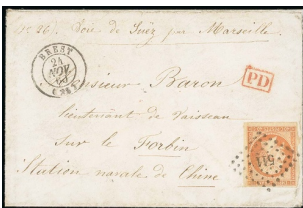 Voie de Suez par Marseille.
BREST
24
NOV
60
(28)
PD
Monsieur Baron
lieutenant de vaisseau
sur le Forbin
Station navale de Chine